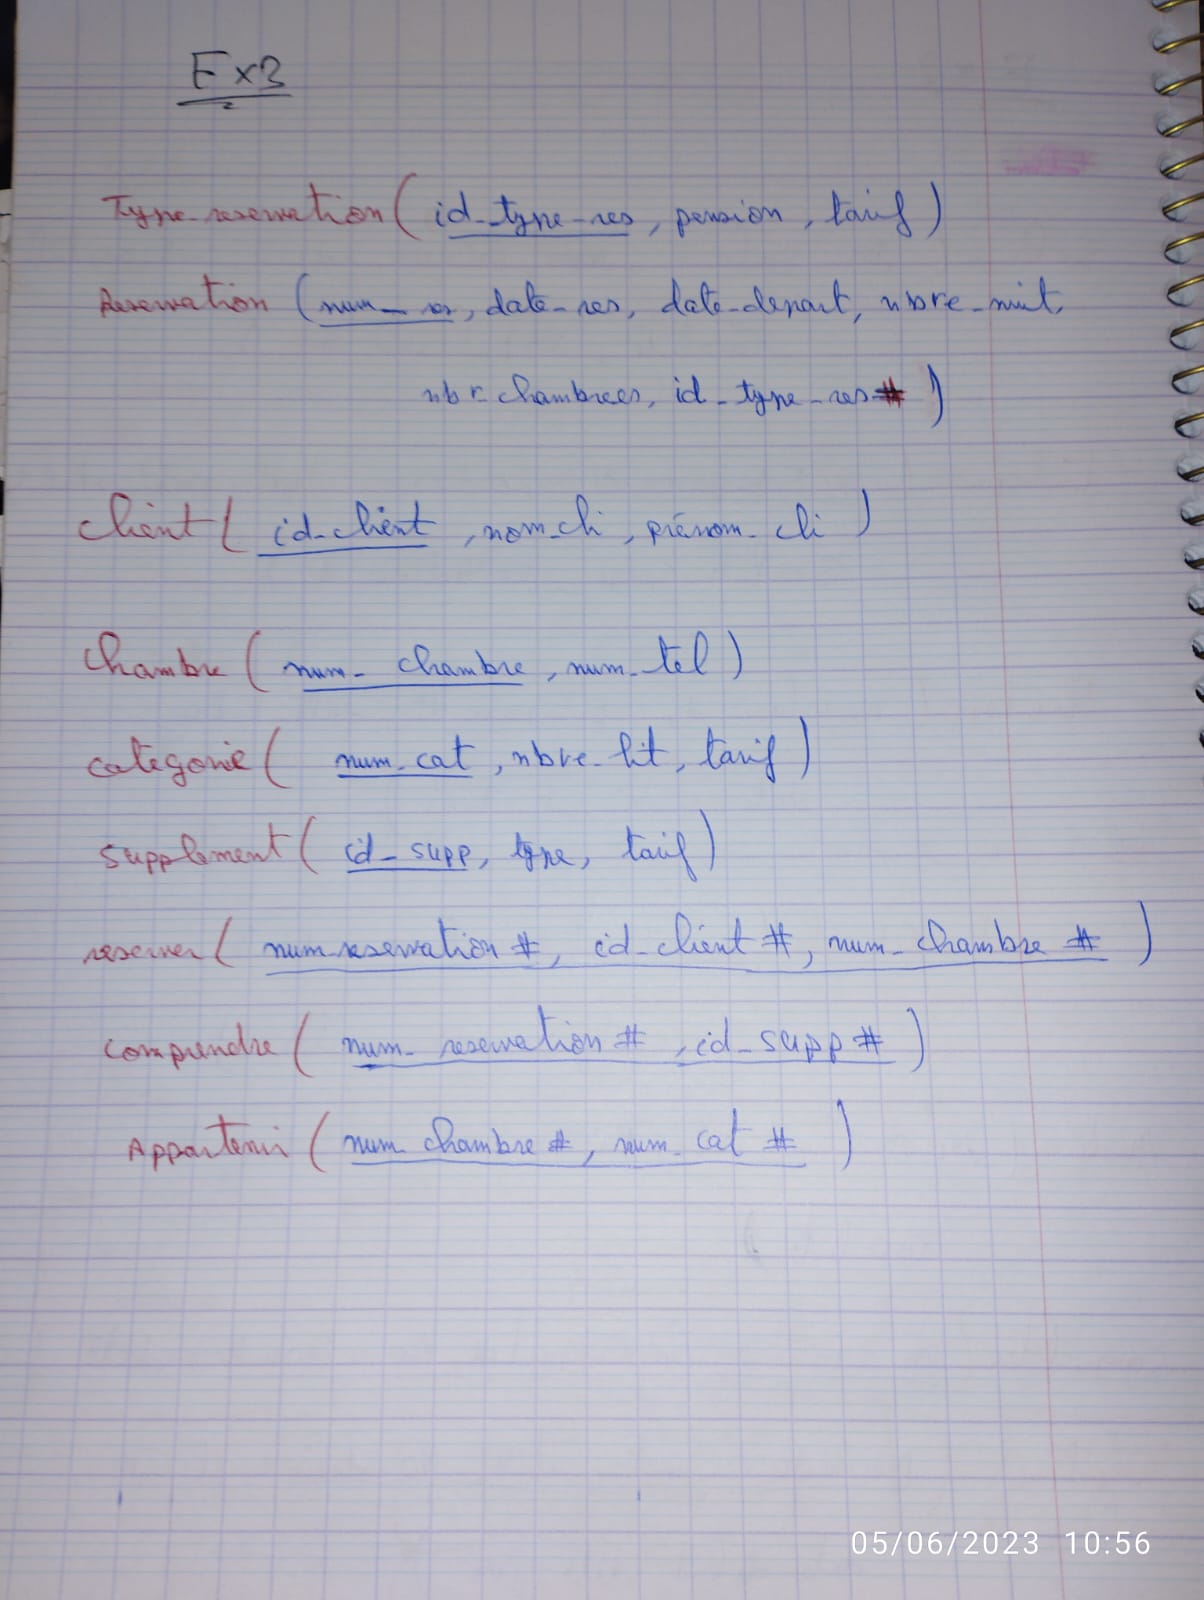 Ex3
Type-reservation ( id_type_res, pension, tarif )
Reservation ( num_res, date-res, date-depart, nbre_nuit,
nbr chambrees, id_type_res# )
Client ( id-client, nom_cli, prénom_cli )
Chambre ( num_chambre, num_tel )
categorie ( num_cat, nbre-lit, tarif )
supplement ( id_supp, type, tarif )
reserver ( num reservation #, id_client #, num_chambre # )
comprendre ( num_reservation #, id_supp # )
Appartenir ( num_chambre #, num_cat # )
05/06/2023 10:56